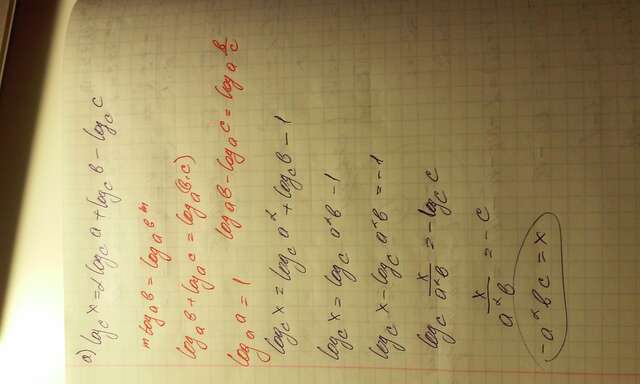 a) log_c x = 2 log_c a + log_c b - log_c c
m log_a b = log_a b^m
log_a b + log_a c = log_a (b·c)
log_a a = 1 log_a b - log_a c = log_a b/c
log_c x = log_c a^2 + log_c b - 1
log_c x = log_c a^2 b - 1
log_c x - log_c a^2 b = -1
log_c x/(a^2 b) = -log_c c
x/(a^2 b) = -c
-a^2 b c = x